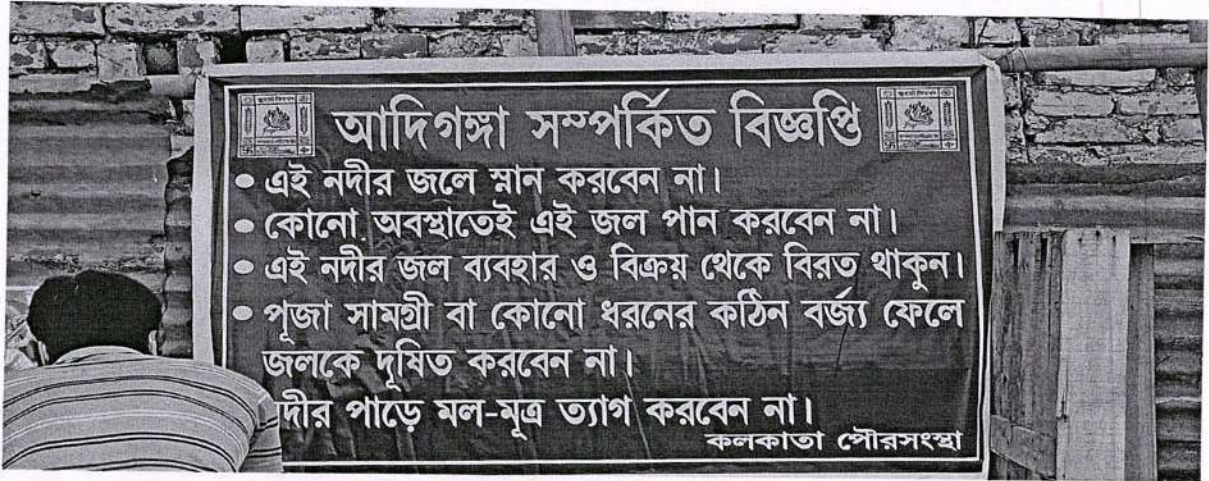 আদিগঙ্গা সম্পর্কিত বিজ্ঞপ্তি
• এই নদীর জলে স্নান করবেন না।
• কোনো অবস্থাতেই এই জল পান করবেন না।
• এই নদীর জল ব্যবহার ও বিক্রয় থেকে বিরত থাকুন।
• পূজা সামগ্রী বা কোনো ধরনের কঠিন বর্জ্য ফেলে
জলকে দূষিত করবেন না।
দীর পাড়ে মল-মূত্র ত্যাগ করবেন না।
কলকাতা পৌরসংস্থা